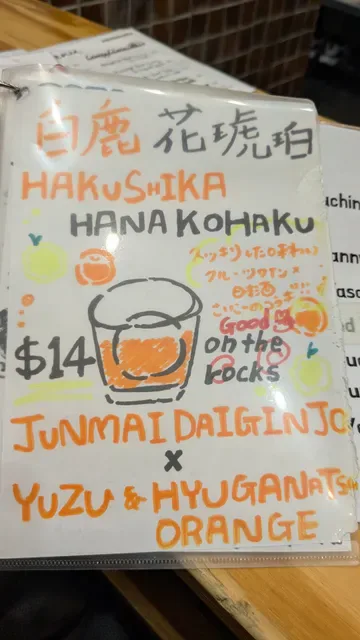 白鹿 花琥珀
HAKUSHIKA
HANA KOHAKU
スッキリした口あたり
フルーツワイン×
日本酒
Good
$14
on the
rocks
JUNMAI DAIGINJO
x
YUZU & HYUGANATSU
ORANGE